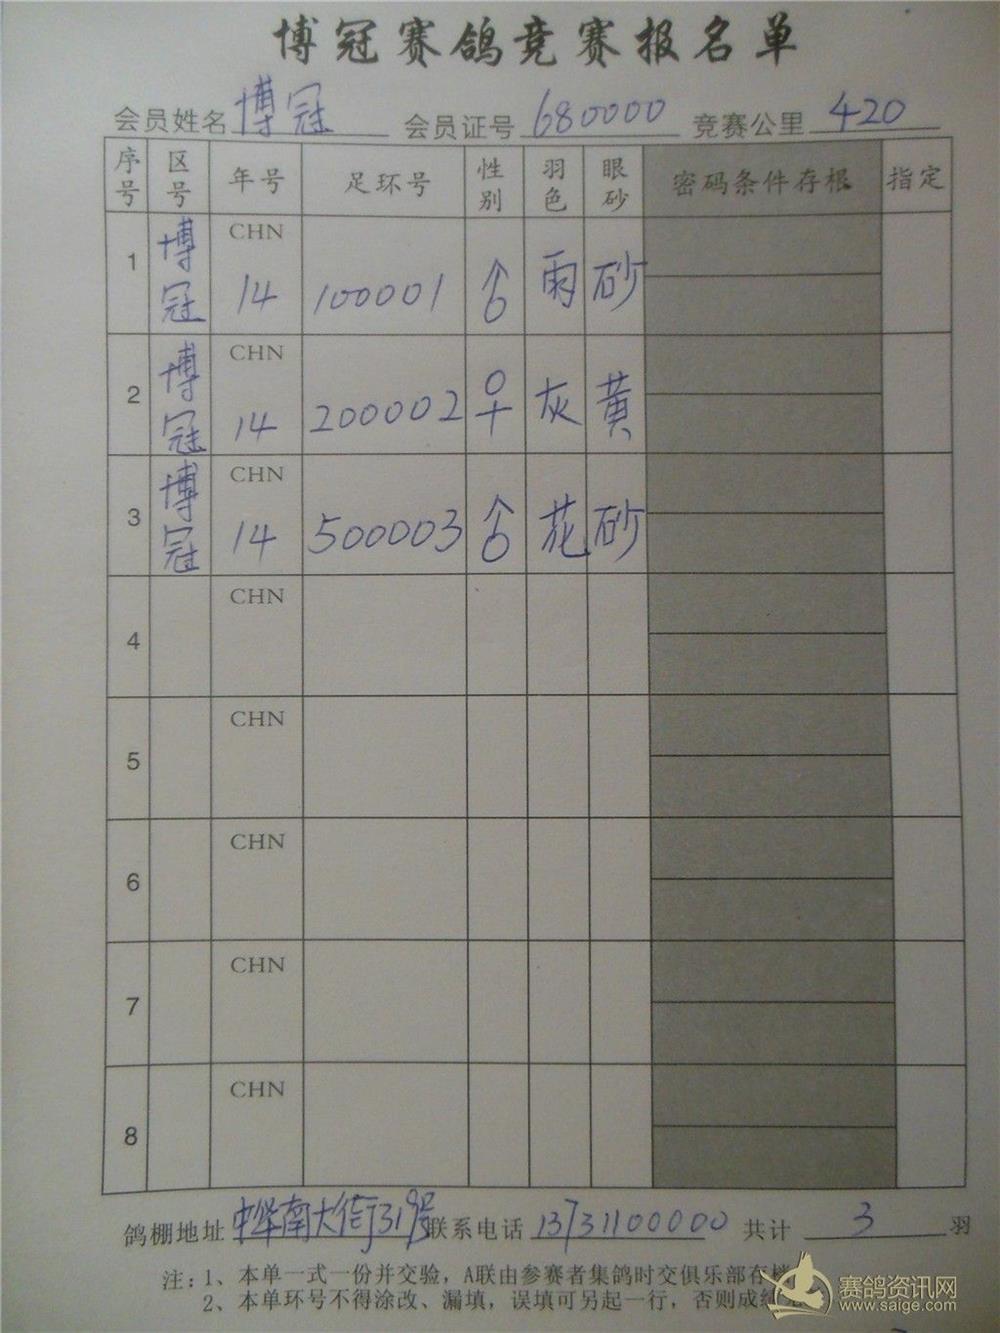 博冠赛鸽竞赛报名单
会员姓名 博冠 会员证号 680000 竞赛公里 420
序号 区号 年号 足环号 性别 羽色 眼砂 密码条件存根 指定
1 博冠 CHN 14 100001 ♂ 雨 砂
2 博冠 CHN 14 200002 ♀ 灰 黄
3 博冠 CHN 14 500003 ♂ 花 砂
4 CHN
5 CHN
6 CHN
7 CHN
8 CHN
鸽棚地址 中华南大街319号 联系电话 13731100000 共计 3 羽
注：1、本单一式一份并交验，A联由参赛者集鸽时交俱乐部存
2、本单环号不得涂改、漏填，误填可另起一行，否则成
赛鸽资讯网
www.saige.com